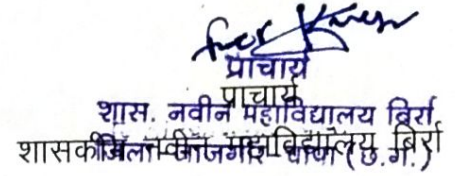 प्राचार्य
प्राचार्य
शास. नवीन महाविद्यालय बिर्रा
शासकीय नवीन महाविद्यालय बिर्रा
जिला (छ.ग.)